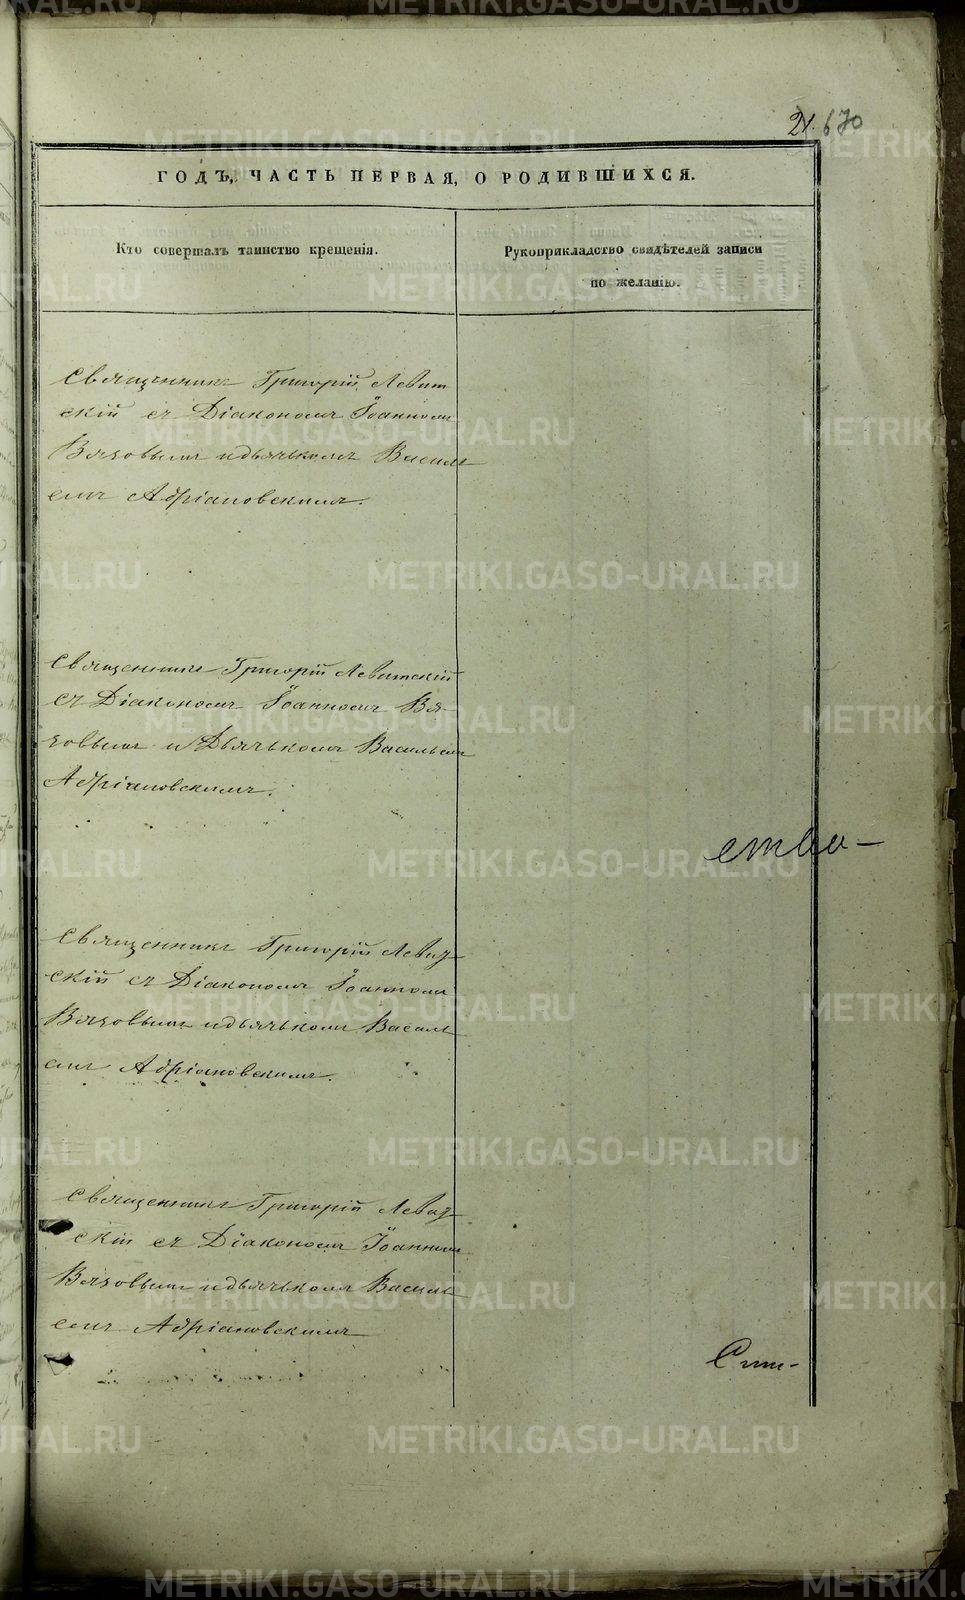 21. 670
ГОДЪ, ЧАСТЬ ПЕРВАЯ, О РОДИВШИХСЯ.
Кто совершалъ таинство крещенія.
Рукоприкладство свидѣтелей записи
по желанію.
Священникъ Григорій Левит
скій съ Діакономъ Іоанномъ
Вязовымъ и дьячькомъ Василь
емъ Адріановскимъ.
Священникъ Григорій Левитскій
съ Діакономъ Іоанномъ Вя-
зовымъ и Дьячькомъ Васильемъ
Адріановскимъ.
ства-
Священникъ Григорій Левиз-
скій съ Діакономъ Іоанномъ
Вязовымъ и дьячькомъ Василь
емъ Адріановскимъ.
Священникъ Григорій Левиз-
скій съ Діакономъ Іоанномъ
Вязовымъ и дьячькомъ Василь
емъ Адріановскимъ
METRIKI.GASO-URAL.RU